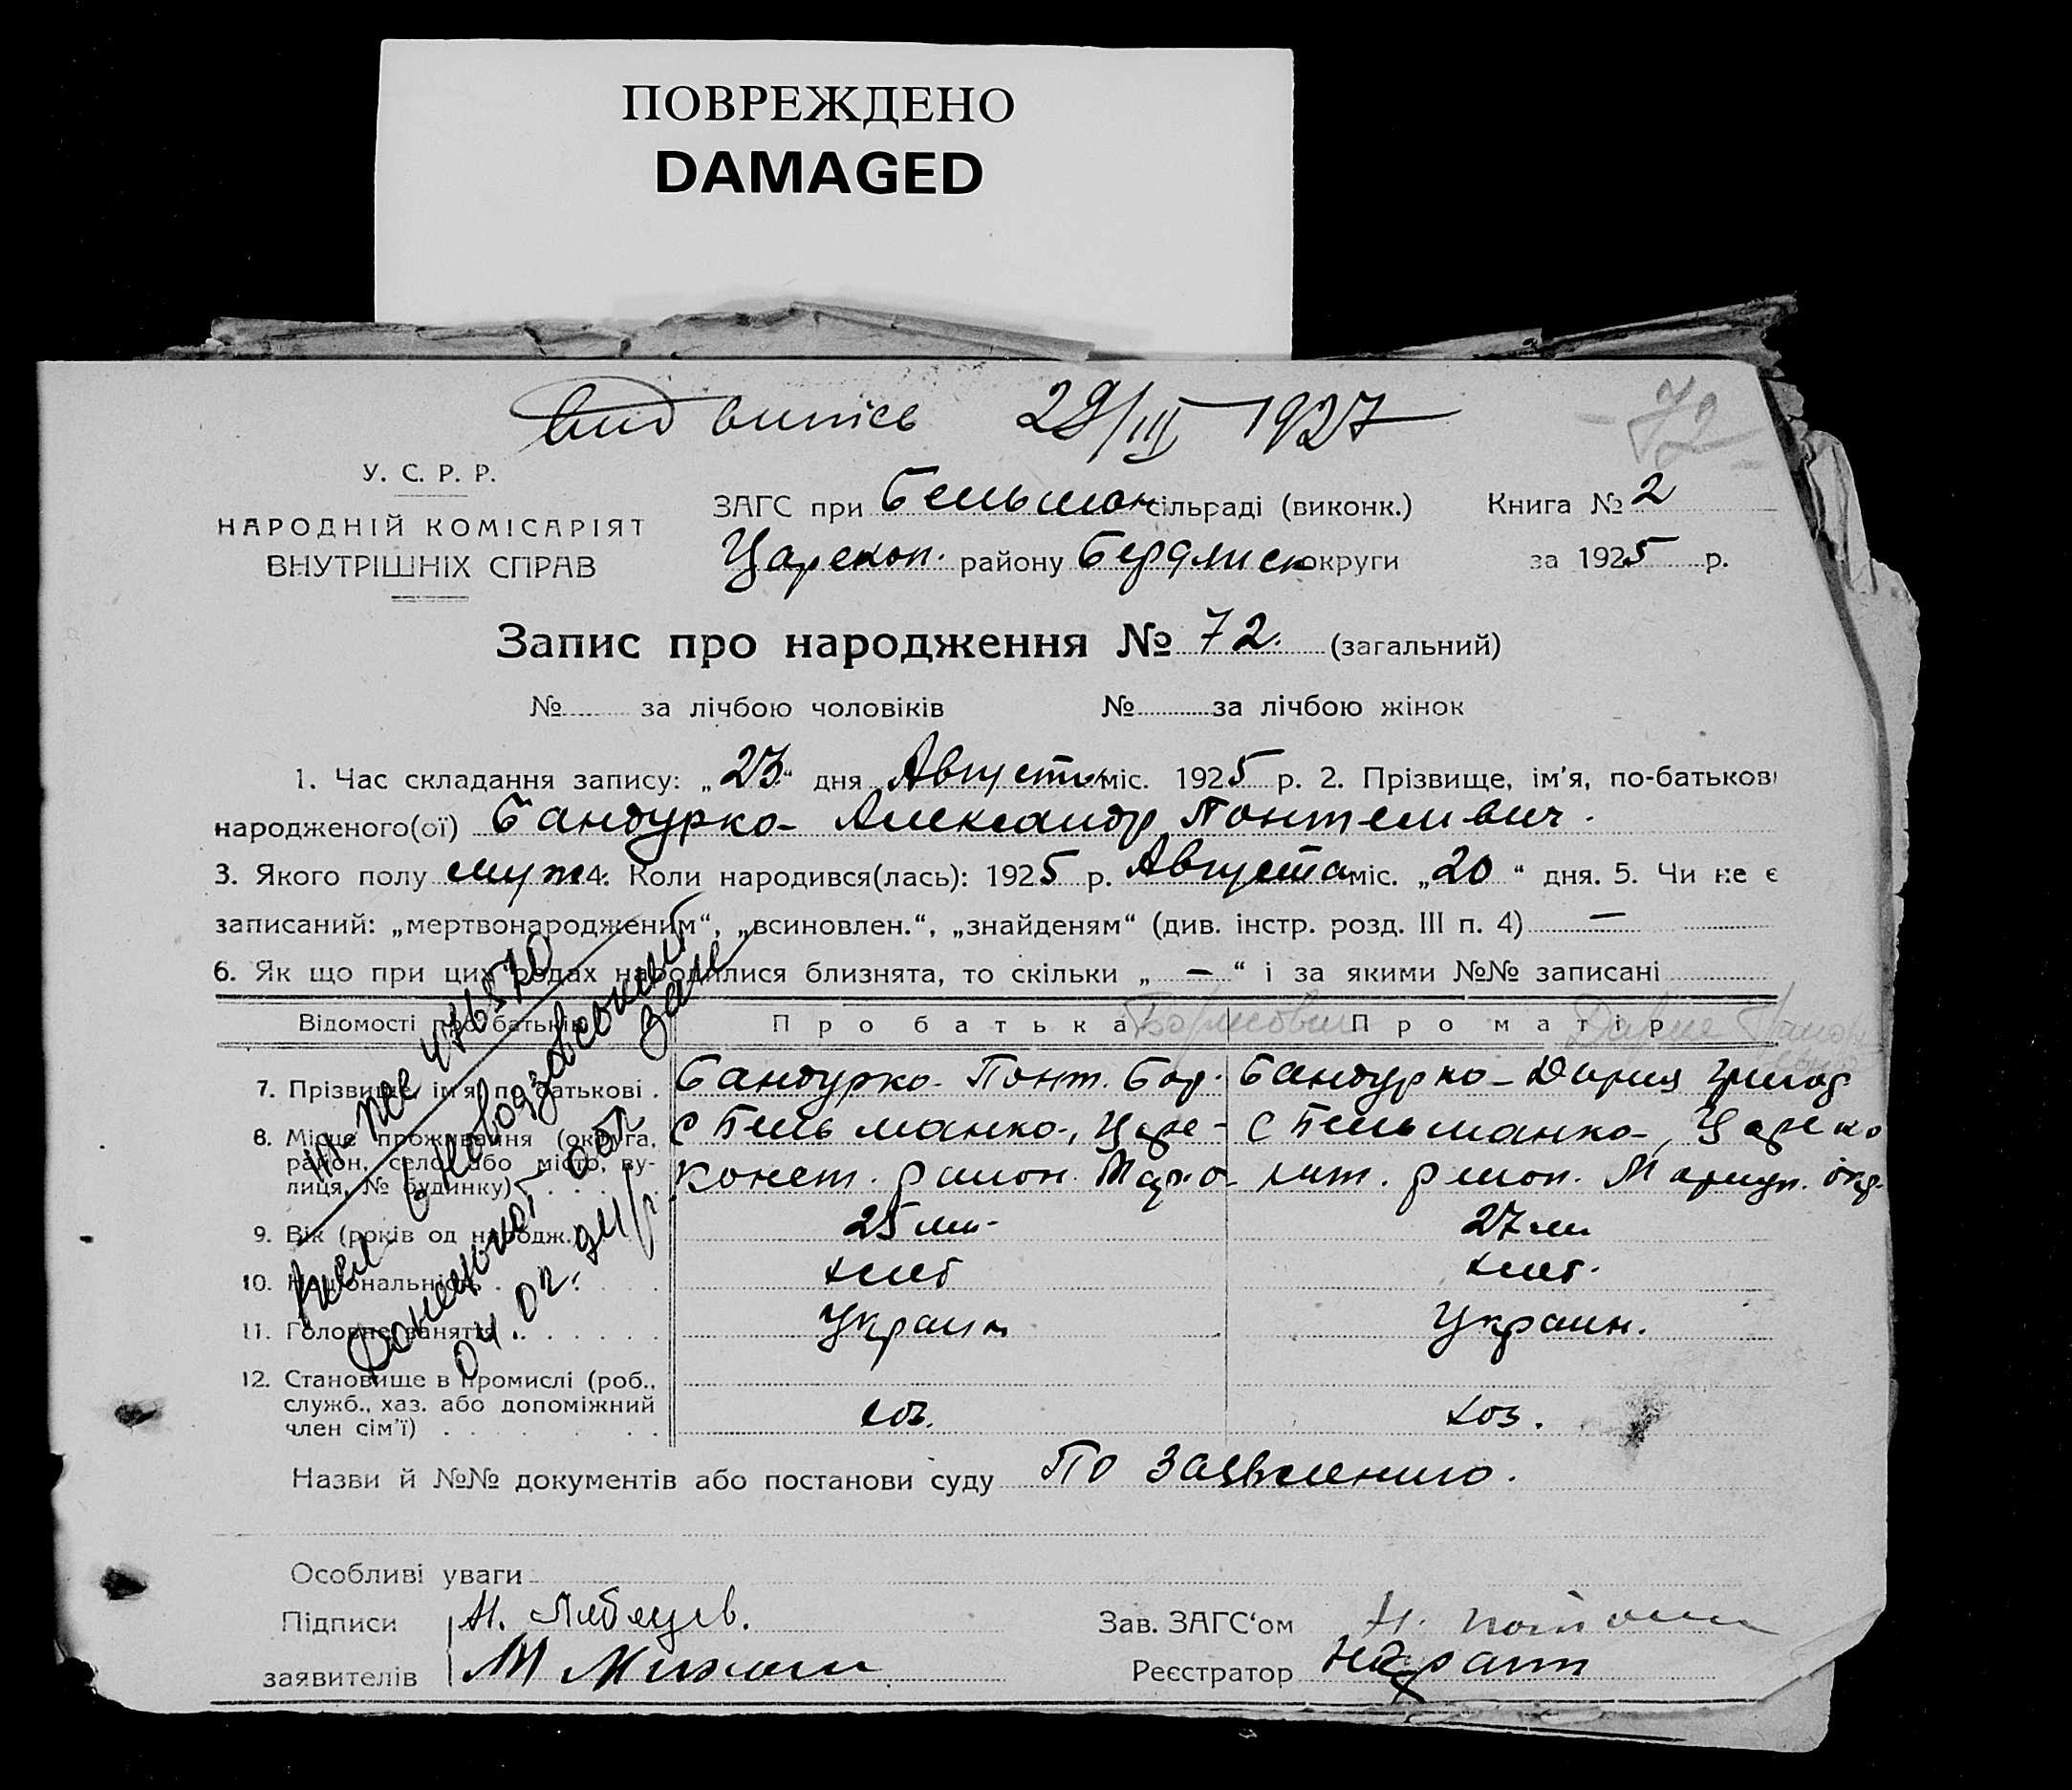 ПОВРЕЖДЕНО
DAMAGED
вид випісь 29/III 1927
72
У. С. Р. Р.
НАРОДНІЙ КОМІСАРІЯТ
ВНУТРІШНІХ СПРАВ
ЗАГС при Бельман сільраді (виконк.) Книга № 2
Царекон. району Бердянск округи за 1925 р.
Запис про народження № 72. (загальний)
№ за лічбою чоловіків № за лічбою жінок
1. Час складання запису: „23“ дня Августа міс. 1925 р. 2. Прізвище, ім'я, по-батькові
народженого(ої) Бандурко- Александр Понтеливич.
3. Якого полу муж 4. Коли народився(лась): 1925 р. Августа міс. „20“ дня. 5. Чи не є
записаний: „мертвонародженим“, „всиновлен.“, „знайденям“ (див. інстр. розд. III п. 4) —
6. Як що при цих родах народилися близнята, то скільки „ — “ і за якими №№ записані
Відомості про батьків Про батька Про матір
Дарие
7. Прізвище, ім'я, по батькові . Бандурко- Понт. Бор. Бандурко- Дария Григор
8. Місце проживання (округа, район, село, або місто, вулиця, № будинку) . . . .
с Бельманко-, Царе- с Бельманко-, Цареко
конст. район. Марио- район. Мариуп. окр.
9. Вік (років од народж.) 25 лет- 27 ле
10. Національність . . . . хлеб хлеб.
11. Головне заняття . . . . . . Украин Украин.
12. Становище в промислі (роб., служб., хаз. або допоміжний член сім'ї) . . . . . . хоз. хоз.
Донецкой обл.
Назви й №№ документів або постанови суду По заявлению.
Особливі уваги
Підписи Н.
заявителів М
Зав. ЗАГС‘ом Н.
Реєстратор